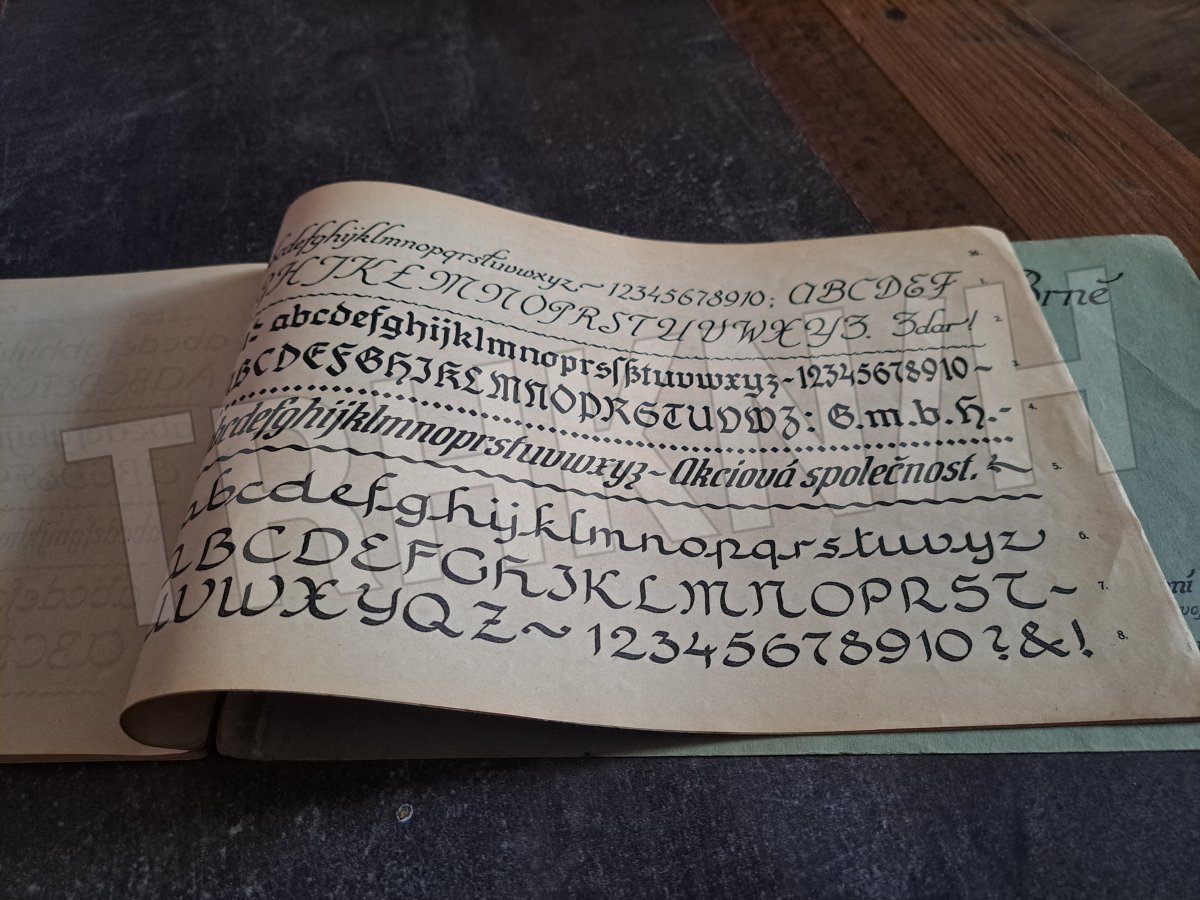 36.
cdefghijklmnopqrstuvwxyz~12345678910; ABCDEF 1.
HIJKLMNOPQRSTUVWXYZ. Zdar! 2.
abcdefghijklmnoprsſßtuvwxyz~12345678910~ 3.
ABCDEFGHIJKLMNOPRSTUVWZ: G.m.b.H.- 4.
bcdefghijklmnoprstuvwxyz~Akciová společnost. 5.
abcdefghijklmnopqrstuvyz 6.
ABCDEFGHIJKLMNOPRST~ 7.
UVWXYQZ~ 12345678910?&! 8.
Brně
TRHKNIH